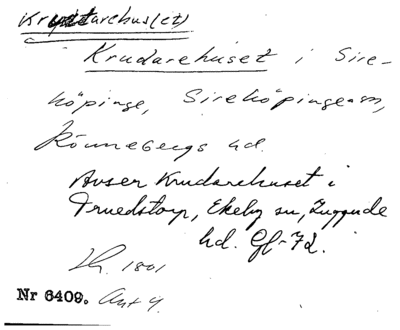 Krutarehus(et)
Krudarehuset i Sire-
köpinge, Sireköpinge sn,
Rönnebergs hd.
Avser Krudarehuset i
Truedstorp, Ekeby sn, Luggude
hd. Gf-72.
1801
Nr 6409. Ant 4.